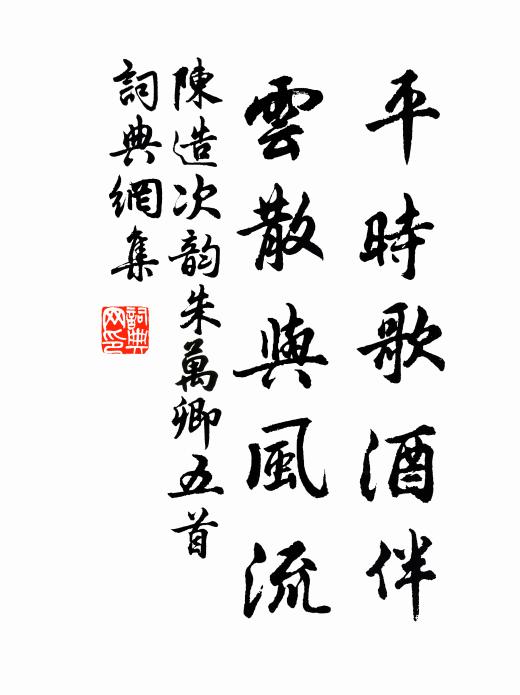 平時歌酒伴
雲散與風流
陳造次韵朱萬卿五首
詞典網集
詞典网印